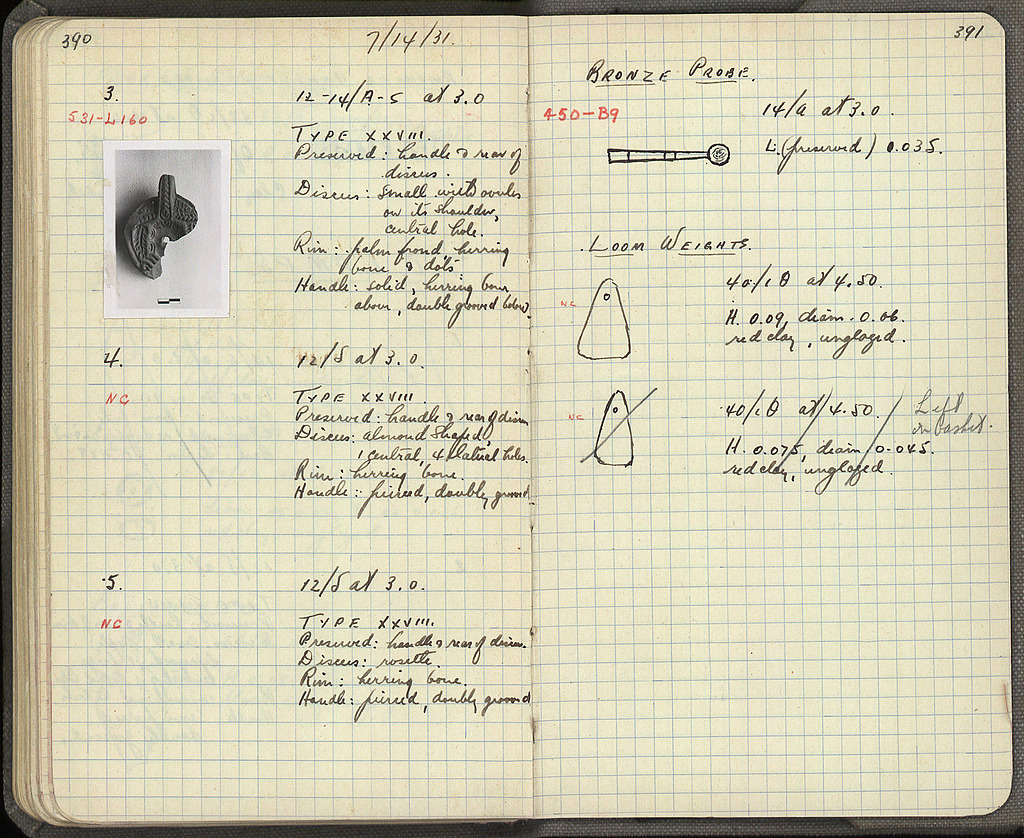 390
7/14/31.
3.
12-14/A-S at 3.0
531-L160
TYPE XXVIII.
Preserved: handle & rear of
discus.
Discus: small with ovules
on its shoulder,
central hole.
Rim: palm frond, herring
bone & dots
Handle: solid, herring bone
above, double grooved below.
4.
12/S at 3.0.
NC
TYPE XXVIII
Preserved: handle & rear of discus
Discus: almond shaped,
1 central, 4 lateral holes.
Rim: herring bone.
Handle: pierced, doubly grooved
5.
12/S at 3.0.
NC
TYPE XXVIII.
Preserved: handle & rear of discus.
Discus: rosette.
Rim: herring bone.
Handle: pierced, doubly grooved
391
BRONZE PROBE.
450-B9
14/A at 3.0.
L. (preserved) 0.035.
LOOM WEIGHTS.
40/ΙΘ at 4.50.
NC
H. 0.09, diam. 0.06.
red clay, unglazed.
40/ΙΘ at 4.50.
Left
in basket.
NC
H. 0.075, diam 0.045.
red clay, unglazed.